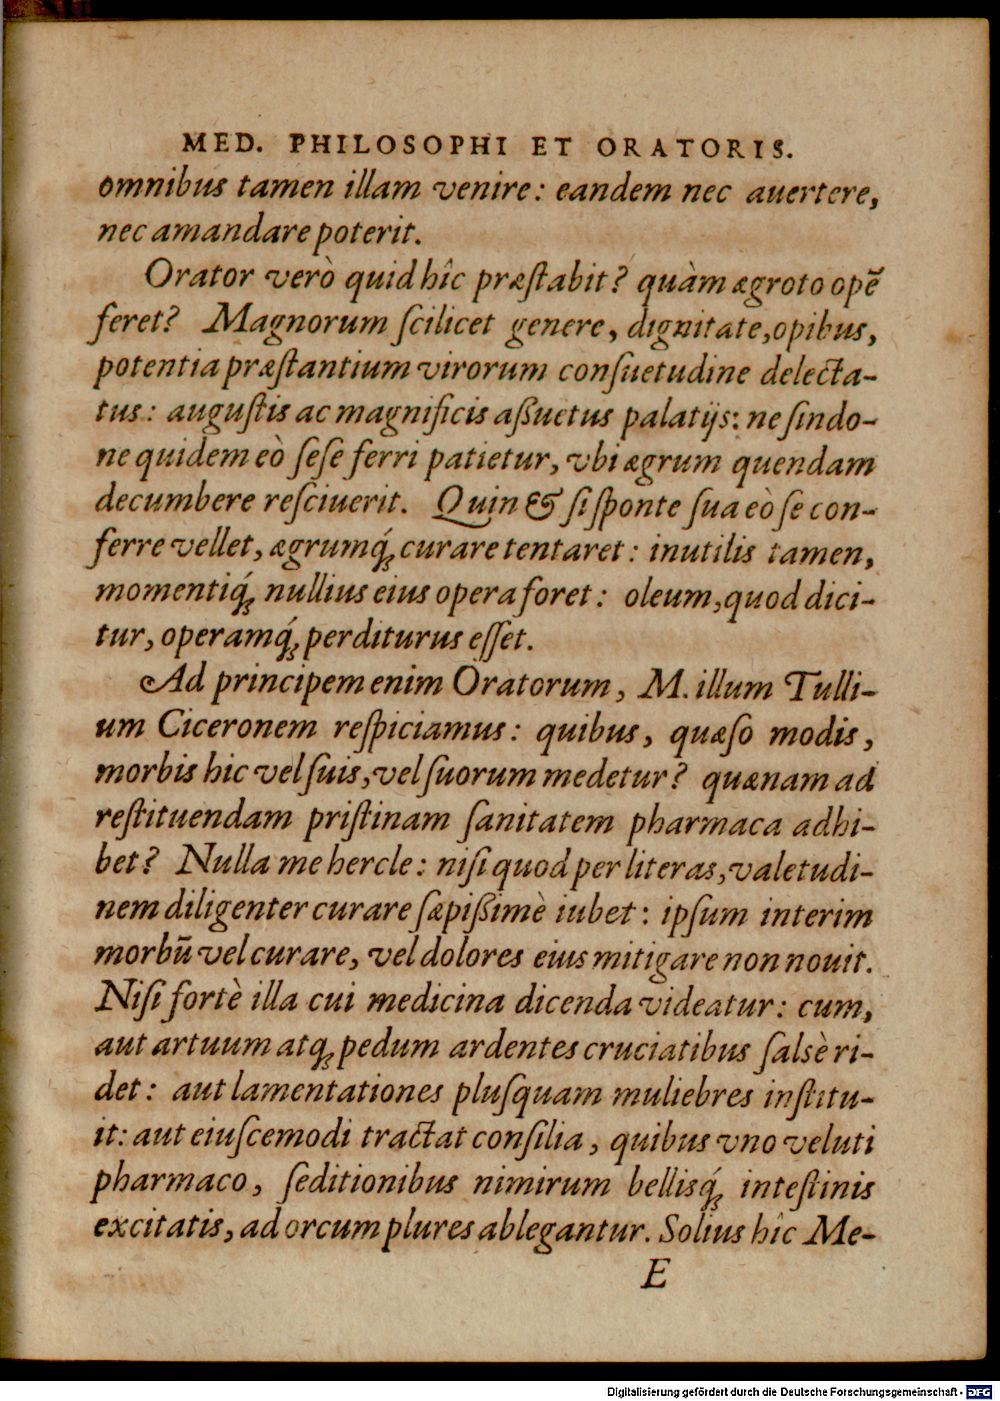 MED. PHILOSOPHI ET ORATORIS.
omnibus tamen illam venire: eandem nec auertere,
nec amandare poterit.
Orator verò quid hîc præſtabit? quàm ægroto opē
feret? Magnorum ſcilicet genere, dignitate, opibus,
potentia præſtantium virorum conſuetudine delecta-
tus: auguſtis ac magnificis aßuetus palatijs: ne ſindo-
ne quidem eò ſeſe ferri patietur, vbi ægrum quendam
decumbere reſciuerit. Quin & ſi ſponte ſua eò ſe con-
ferre vellet, ægrumq́; curare tentaret: inutilis tamen,
momentiq́; nullius eius opera foret: oleum, quod dici-
tur, operamq́; perditurus eſſet.
Ad principem enim Oratorum, M. illum Tulli-
um Ciceronem reſpiciamus: quibus, quæſo modis,
morbis hic vel ſuis, vel ſuorum medetur? quænam ad
reſtituendam priſtinam ſanitatem pharmaca adhi-
bet? Nulla me hercle: niſi quod per literas, valetudi-
nem diligenter curare ſæpißimè iubet: ipſum interim
morbū vel curare, vel dolores eius mitigare non nouit.
Niſi fortè illa cui medicina dicenda videatur: cum,
aut artuum atq; pedum ardentes cruciatibus ſalsè ri-
det: aut lamentationes pluſquam muliebres inſtitu-
it: aut eiuſcemodi tractat conſilia, quibus vno veluti
pharmaco, ſeditionibus nimirum bellisq́; inteſtinis
excitatis, ad orcum plures ablegantur. Solius hîc Me-
E
Digitalisierung gefördert durch die Deutsche Forschungsgemeinschaft - DFG